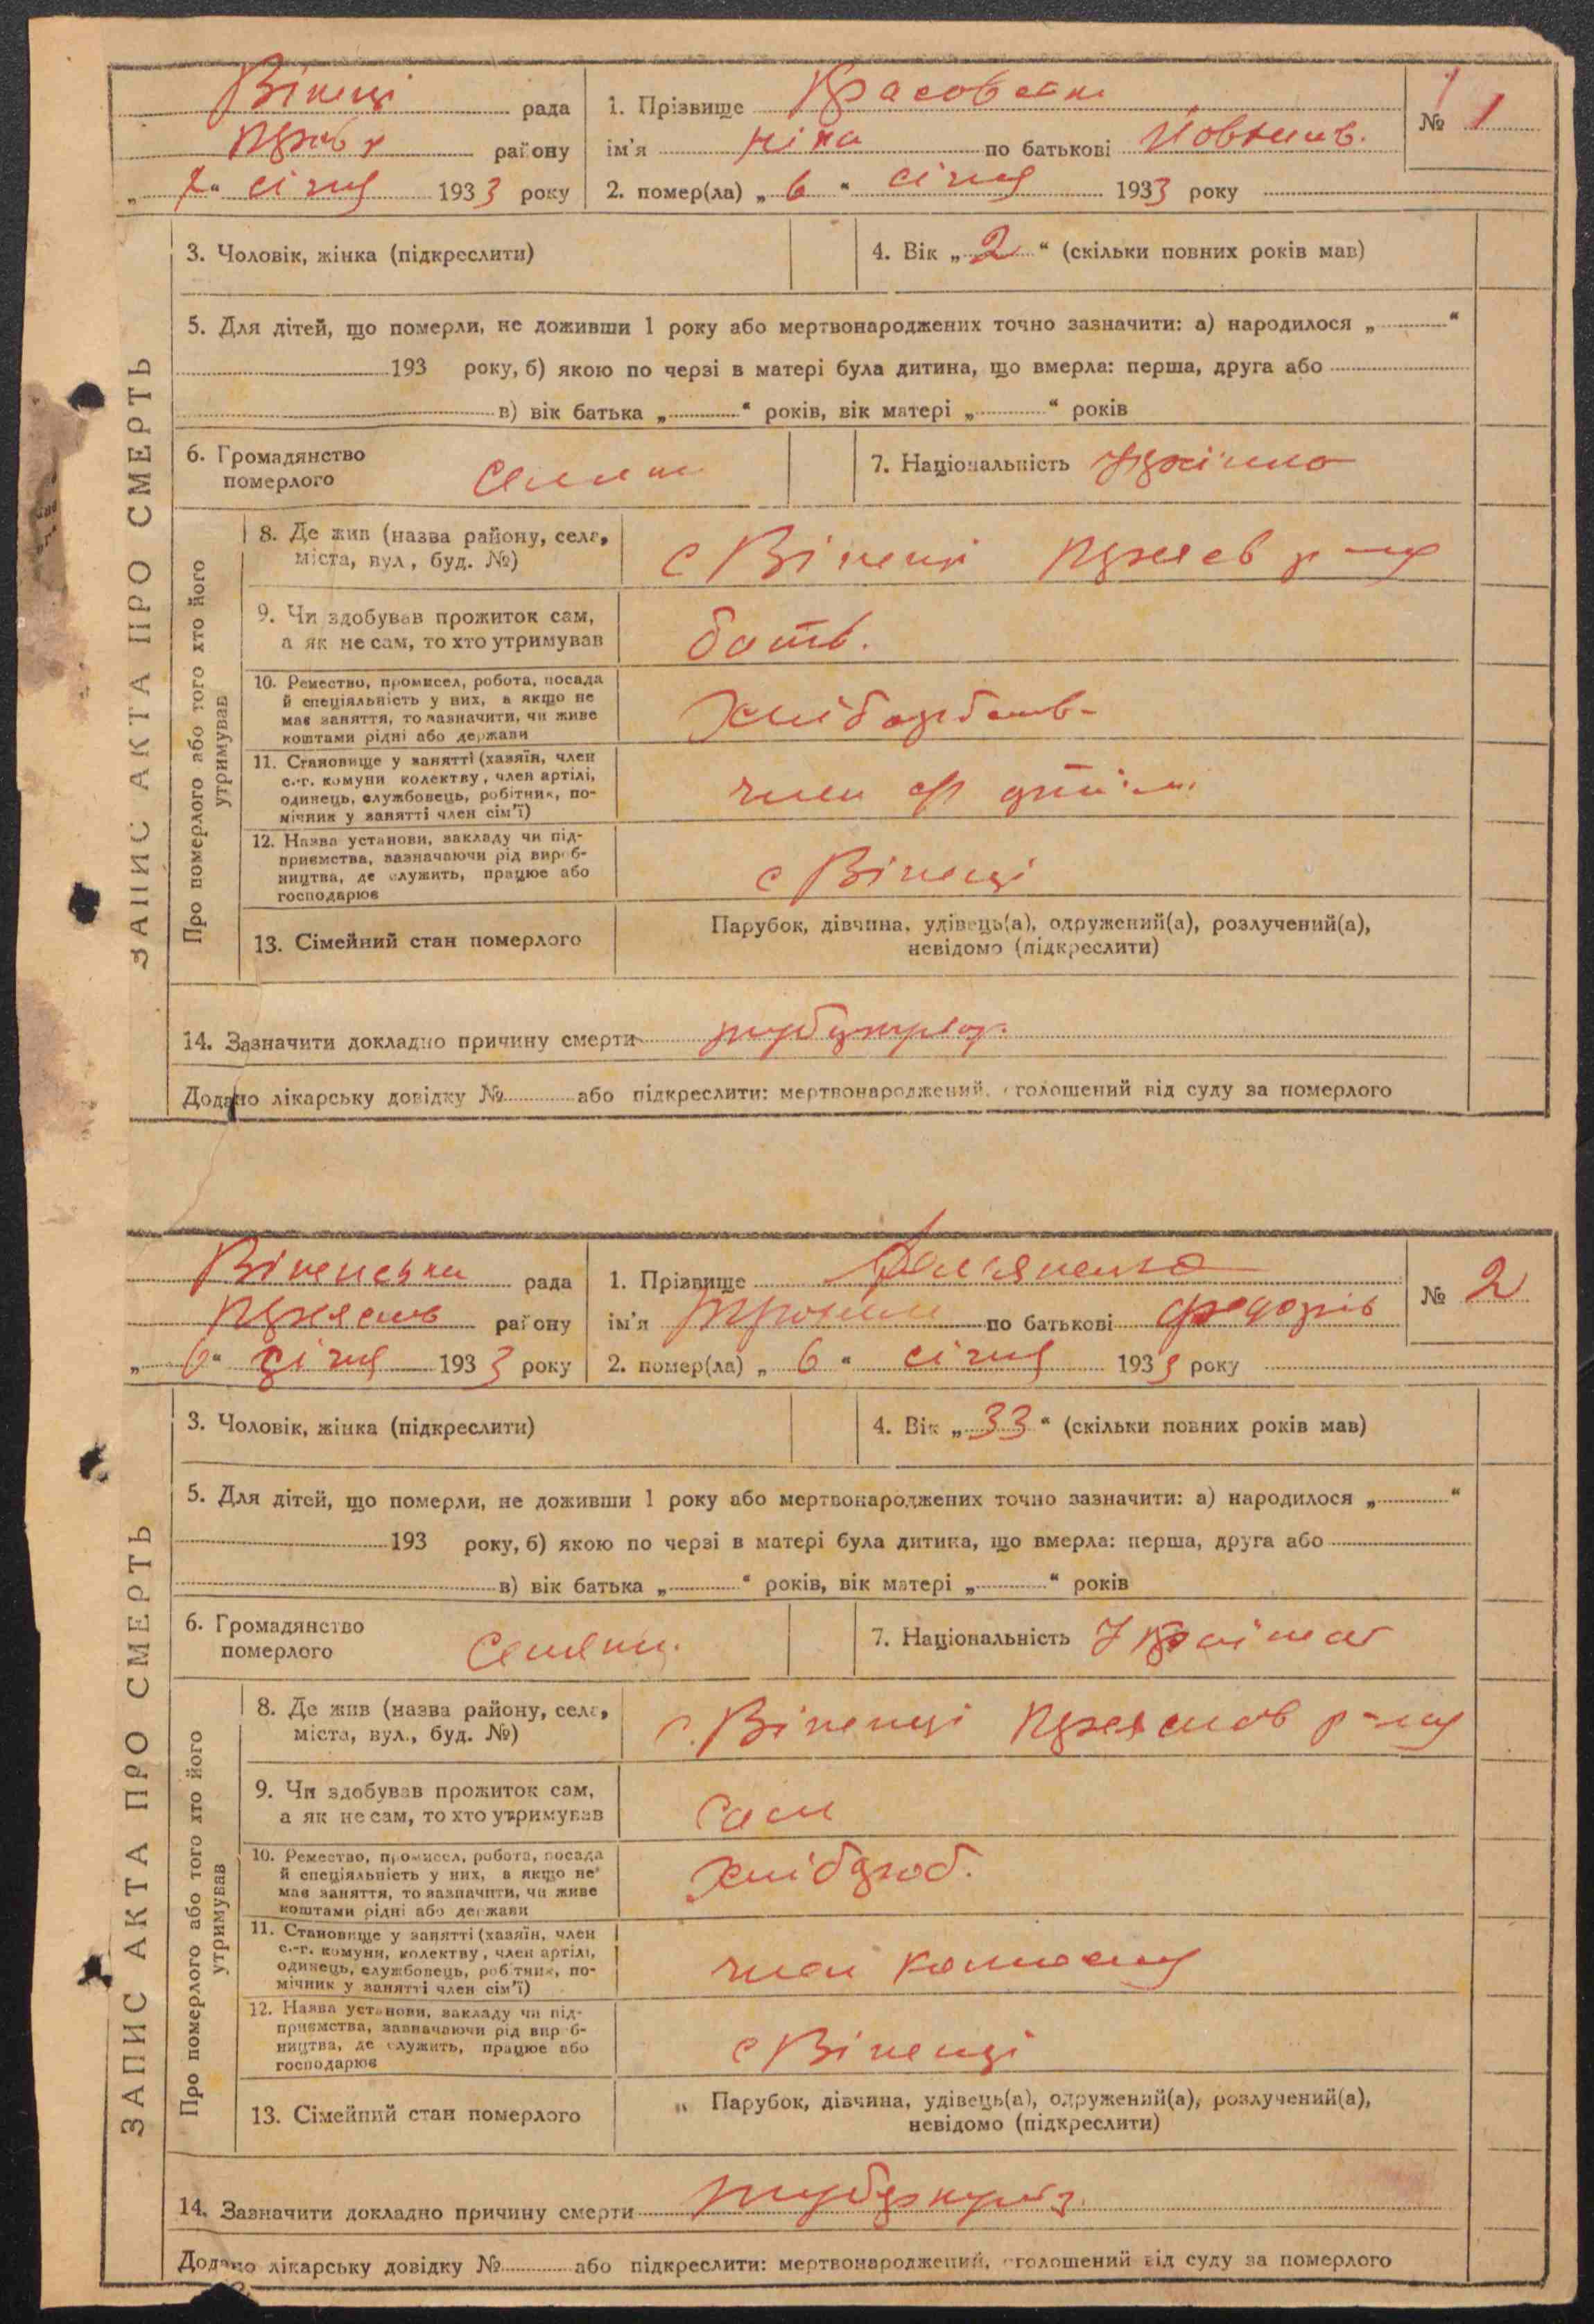 Вінеці рада
району
„ 7 “ січня 1933 року
1. Прізвище
ім'я Ніна по батькові
2. помер(ла) „ 6 “ січня 1933 року
№ 1
ЗАПИС АКТА ПРО СМЕРТЬ
3. Чоловік, жінка (підкреслити)
4. Вік „ 2 “ (скільки повних років мав)
5. Для дітей, що померли, не доживши 1 року або мертвонароджених точно зазначити: а) народилося „ “
193 року, б) якою по черзі в матері була дитина, що вмерла: перша, друга або
в) вік батька „ “ років, вік матері „ “ років
6. Громадянство
померлого
7. Національність
Про померлого або того хто його
утримував
8. Де жив (назва району, села,
міста, вул., буд. №)
с Вінеці
9. Чи здобував прожиток сам,
а як не сам, то хто утримував
батьк.
10. Ремество, промисел, робота, посада
й спеціяльність у них, а якщо не
має заняття, то зазначити, чи живе
коштами рідні або держави
11. Становище у занятті (хазяїн, член
с.-г. комуни колектву, член артілі,
одинець, службовець, робітник, по-
мічник у занятті член сім'ї)
член
12. Назва установи, закладу чи під-
приємства, зазначаючи рід вироб-
ництва, де служить, працює або
господарює
с Вінеці
13. Сімейний стан померлого
Парубок, дівчина, удівець(а), одружений(а), розлучений(а),
невідомо (підкреслити)
14. Зазначити докладно причину смерти туберкульоз.
Додано лікарську довідку № або підкреслити: мертвонароджений, оголошений від суду за померлого
рада
району
„ 6 “ січня 1933 року
1. Прізвище
ім'я по батькові Федорів
2. помер(ла) „ 6 “ січня 1933 року
№ 2
ЗАПИС АКТА ПРО СМЕРТЬ
3. Чоловік, жінка (підкреслити)
4. Вік „ 33 “ (скільки повних років мав)
5. Для дітей, що померли, не доживши 1 року або мертвонароджених точно зазначити: а) народилося „ “
193 року, б) якою по черзі в матері була дитина, що вмерла: перша, друга або
в) вік батька „ “ років, вік матері „ “ років
6. Громадянство
померлого
Селянин.
7. Національність
Про померлого або того хто його
утримував
8. Де жив (назва району, села,
міста, вул., буд. №)
с. Віненці
9. Чи здобував прожиток сам,
а як не сам, то хто утримував
Сам
10. Ремество, промисел, робота, посада
й спеціяльність у них, а якщо не
має заняття, то зазначити, чи живе
коштами рідні або держави
Хлібороб.
11. Становище у занятті (хазяїн, член
с.-г. комуни, колектву, член артілі,
одинець, службовець, робітник, по-
мічник у занятті член сім'ї)
член колгоспу
12. Назва установи, закладу чи під-
приємства, зазначаючи рід вироб-
ництва, де служить, працює або
господарює
с Віненці
13. Сімейний стан померлого
Парубок, дівчина, удівець(а), одружений(а), розлучений(а),
невідомо (підкреслити)
14. Зазначити докладно причину смерти туберкульоз.
Додано лікарську довідку № або підкреслити: мертвонароджений, оголошений від суду за померлого